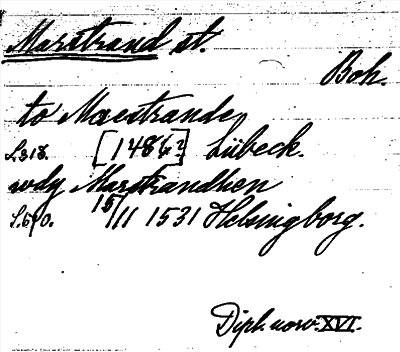 Marstrand st.
Boh.
to Maestrande
S.318. [1486?] Lübeck.
wdy Marstrandhen
S.670. 15/11 1531 Helsingborg.
Dipl. norv. XVI.